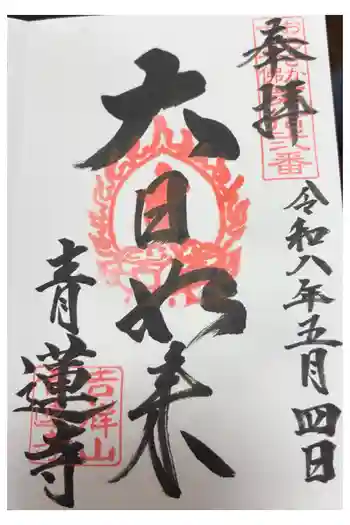 奉拝
令和八年五月四日
大日如来
青蓮寺
吉祥山